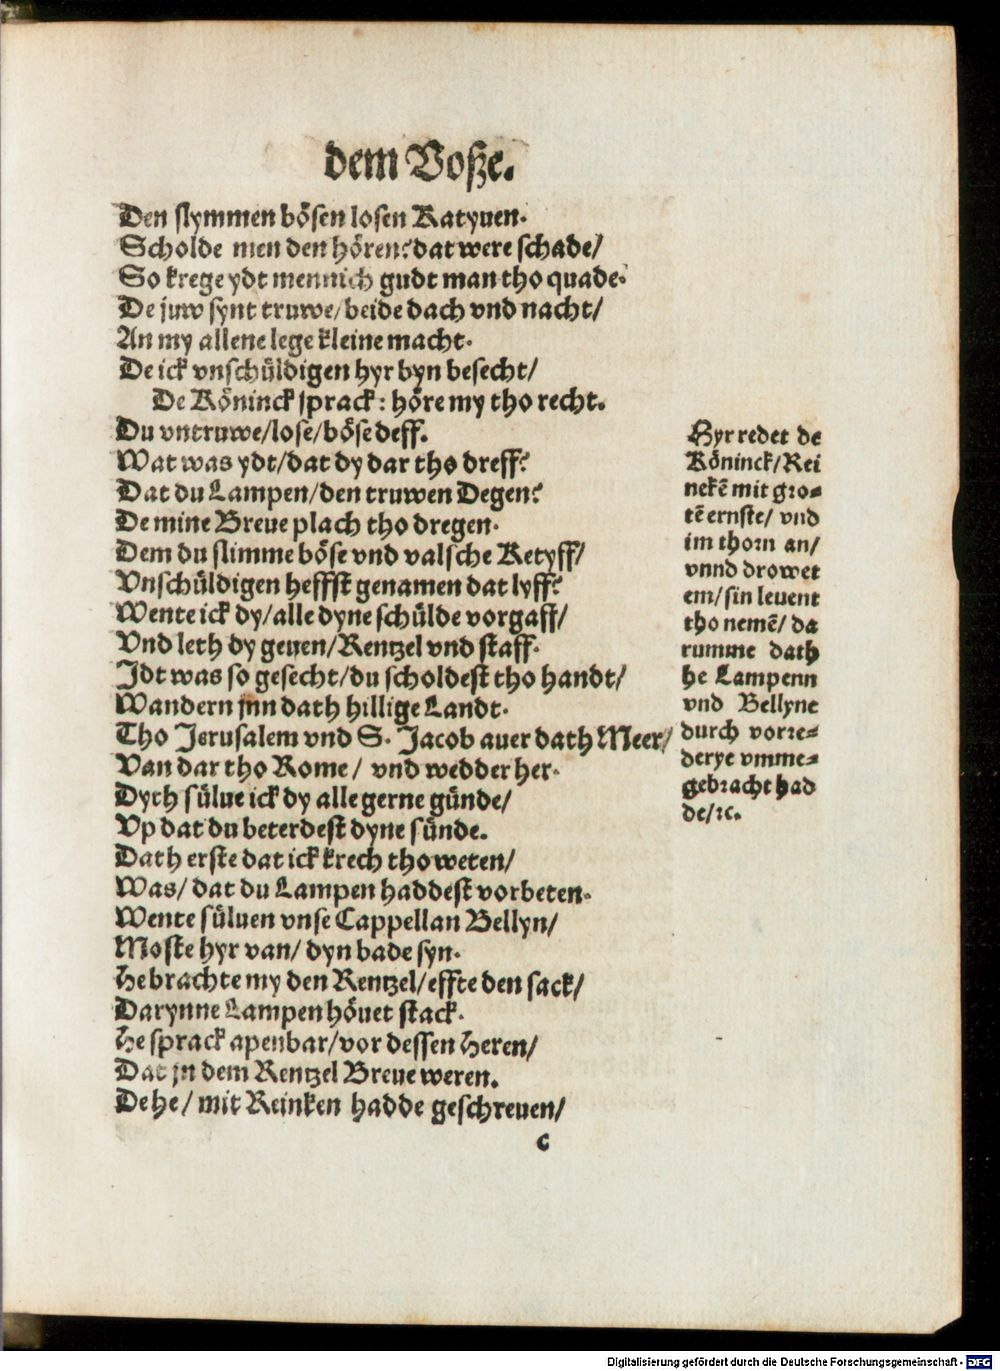 dem Voſze.
Den ſlymmen böſen loſen Katyuen.
Scholde men den hören? dat were ſchade/
So krege ydt mennich gudt man tho quade.
De juw ſynt truwe/ beide dach vnd nacht/
An my allene lege kleine macht.
De ick vnſchüldigen hyr byn beſecht/
De Köninck ſprack: höre my tho recht.
Du vntruwe/loſe/böſe deff.
Wat was ydt/dat dy dar tho dreff?
Dat du Lampen/den truwen Degen?
De mine Breue plach tho dregen.
Dem du ſlimme böſe vnd valſche Ketyff/
Vnſchüldigen heffſt genamen dat lyff?
Wente ick dy/alle dyne ſchülde vorgaff/
Vnd leth dy geuen/Rentzel vnd ſtaff.
Jdt was ſo geſecht/du ſcholdeſt tho handt/
Wandern jnn dath hillige Landt.
Tho Jeruſalem vnd S. Jacob auer dath Meer/
Van dar tho Rome/ vnd wedder her.
Dyth ſülue ick dy alle gerne günde/
Vp dat du beterdeſt dyne ſünde.
Dath erſte dat ick krech tho weten/
Was/ dat du Lampen haddeſt vorbeten.
Wente ſüluen vnſe Cappellan Bellyn/
Moſte hyr van/ dyn bade ſyn.
He brachte my den Rentzel/effte den ſack/
Darynne Lampen höuet ſtack.
He ſprack apenbar/vor deſſen Heren/
Dat jn dem Rentzel Breue weren.
De he/ mit Reinken hadde geſchreuen/
c
Hyr redet de
Köninck/Rei
nekē mit gro⸗
tē ernſte/ vnd
im thorn an/
vnnd drowet
em/ſin leuent
tho nemē/ da
rumme dath
he Lampenn
vnd Bellyne
durch vorre⸗
derye vmme⸗
gebracht had
de/ꝛc.
Digitalisierung gefördert durch die Deutsche Forschungsgemeinschaft - DFG